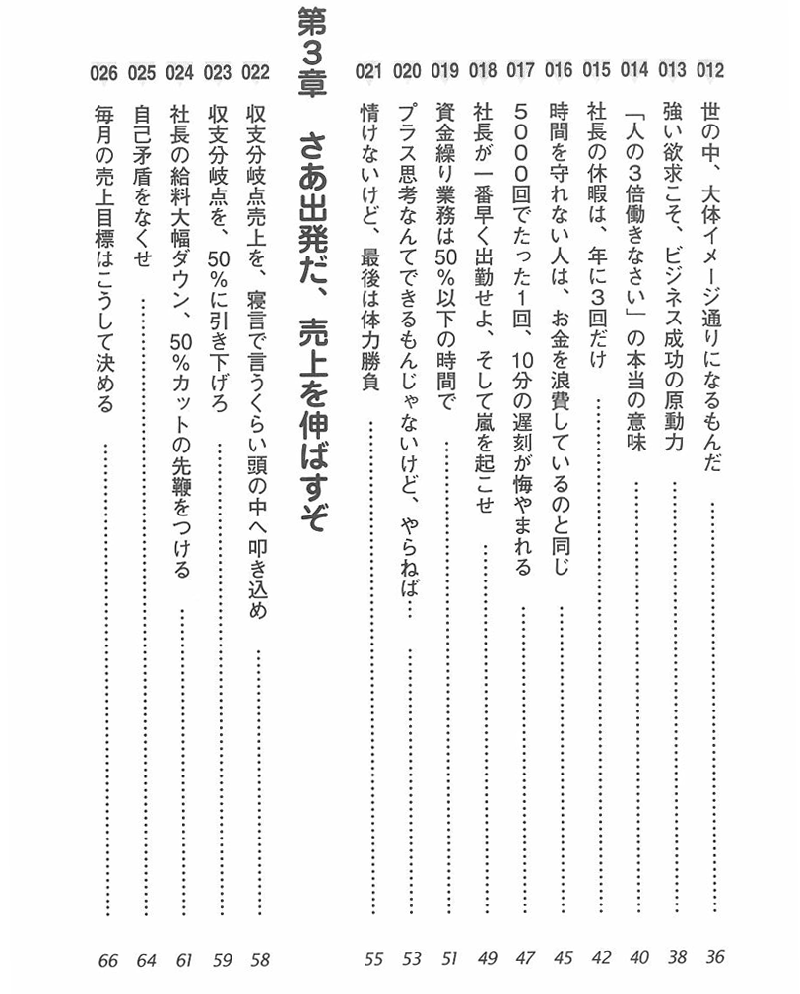 012 世の中、大体イメージ通りになるもんだ 36
013 強い欲求こそ、ビジネス成功の原動力 38
014 「人の3倍働きなさい」の本当の意味 40
015 社長の休暇は、年に3回だけ 42
016 時間を守れない人は、お金を浪費しているのと同じ 45
017 5000回でたった1回、10分の遅刻が悔やまれる 47
018 社長が一番早く出勤せよ、そして嵐を起こせ 49
019 資金繰り業務は50%以下の時間で 51
020 プラス思考なんてできるもんじゃないけど、やらねば… 53
021 情けないけど、最後は体力勝負 55
第3章 さあ出発だ、売上を伸ばすぞ
022 収支分岐点売上を、寝言で言うくらい頭の中へ叩き込め 58
023 収支分岐点を、50%に引き下げろ 59
024 社長の給料大幅ダウン、50%カットの先鞭をつける 61
025 自己矛盾をなくせ 64
026 毎月の売上目標はこうして決める 66